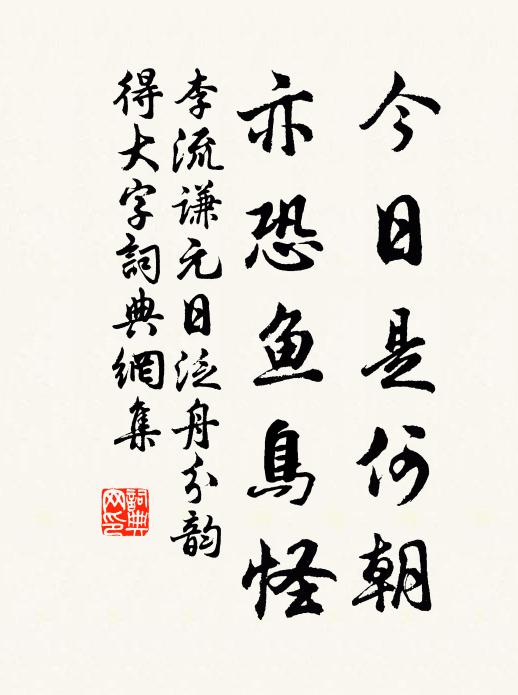 今日是何朝
亦恐鱼鳥怪
李流谦元日泛舟分韵
得大字詞典網集
詞典网印